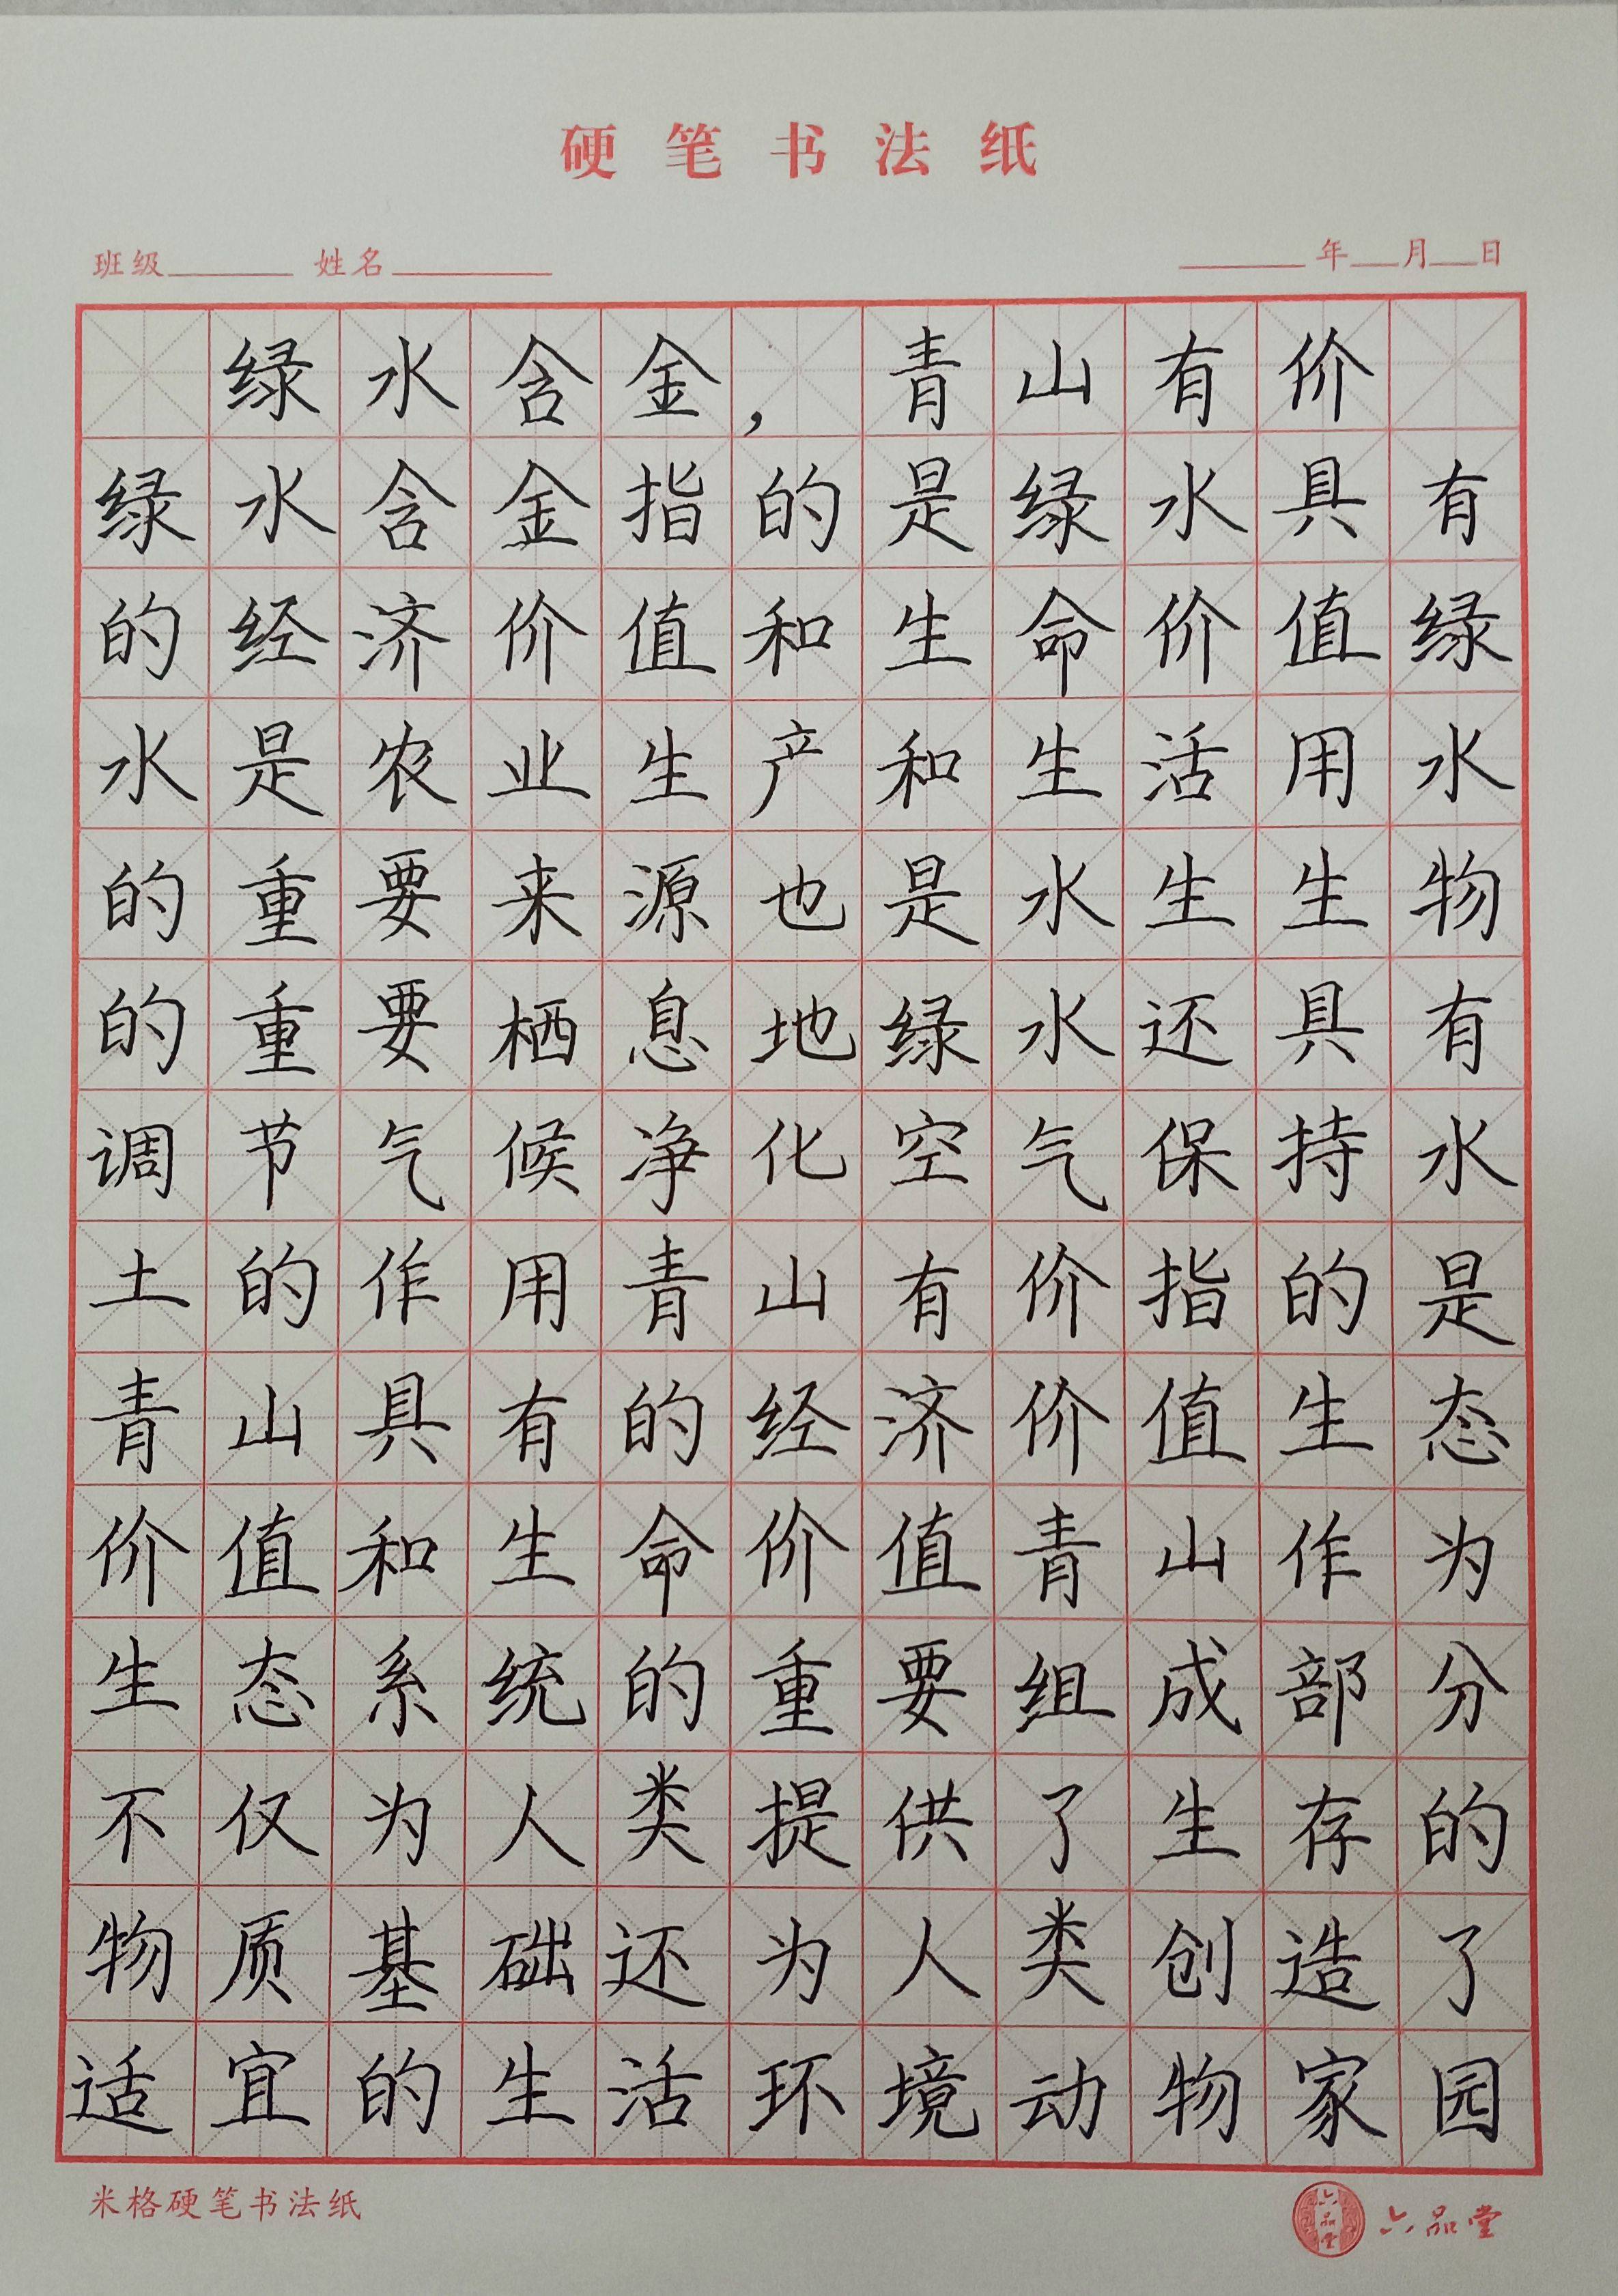 硬笔书法纸
班级 姓名 年 月 日
绿水含金，青山有价
绿水含金指的是绿水具有
的经济价值和生命价值绿
水是农业生产和生活用水
的重要来源也是水生生物
的重要栖息地绿水还具有
调节气候净化空气保持水
土的作用青山有价指的是
青山具有的经济价值生态
价值和生命价值青山作为
生态系统的重要组成部分
不仅为人类提供了生存的
物质基础还为人类创造了
适宜的生活环境动物家园
米格硬笔书法纸
六品堂 六品堂